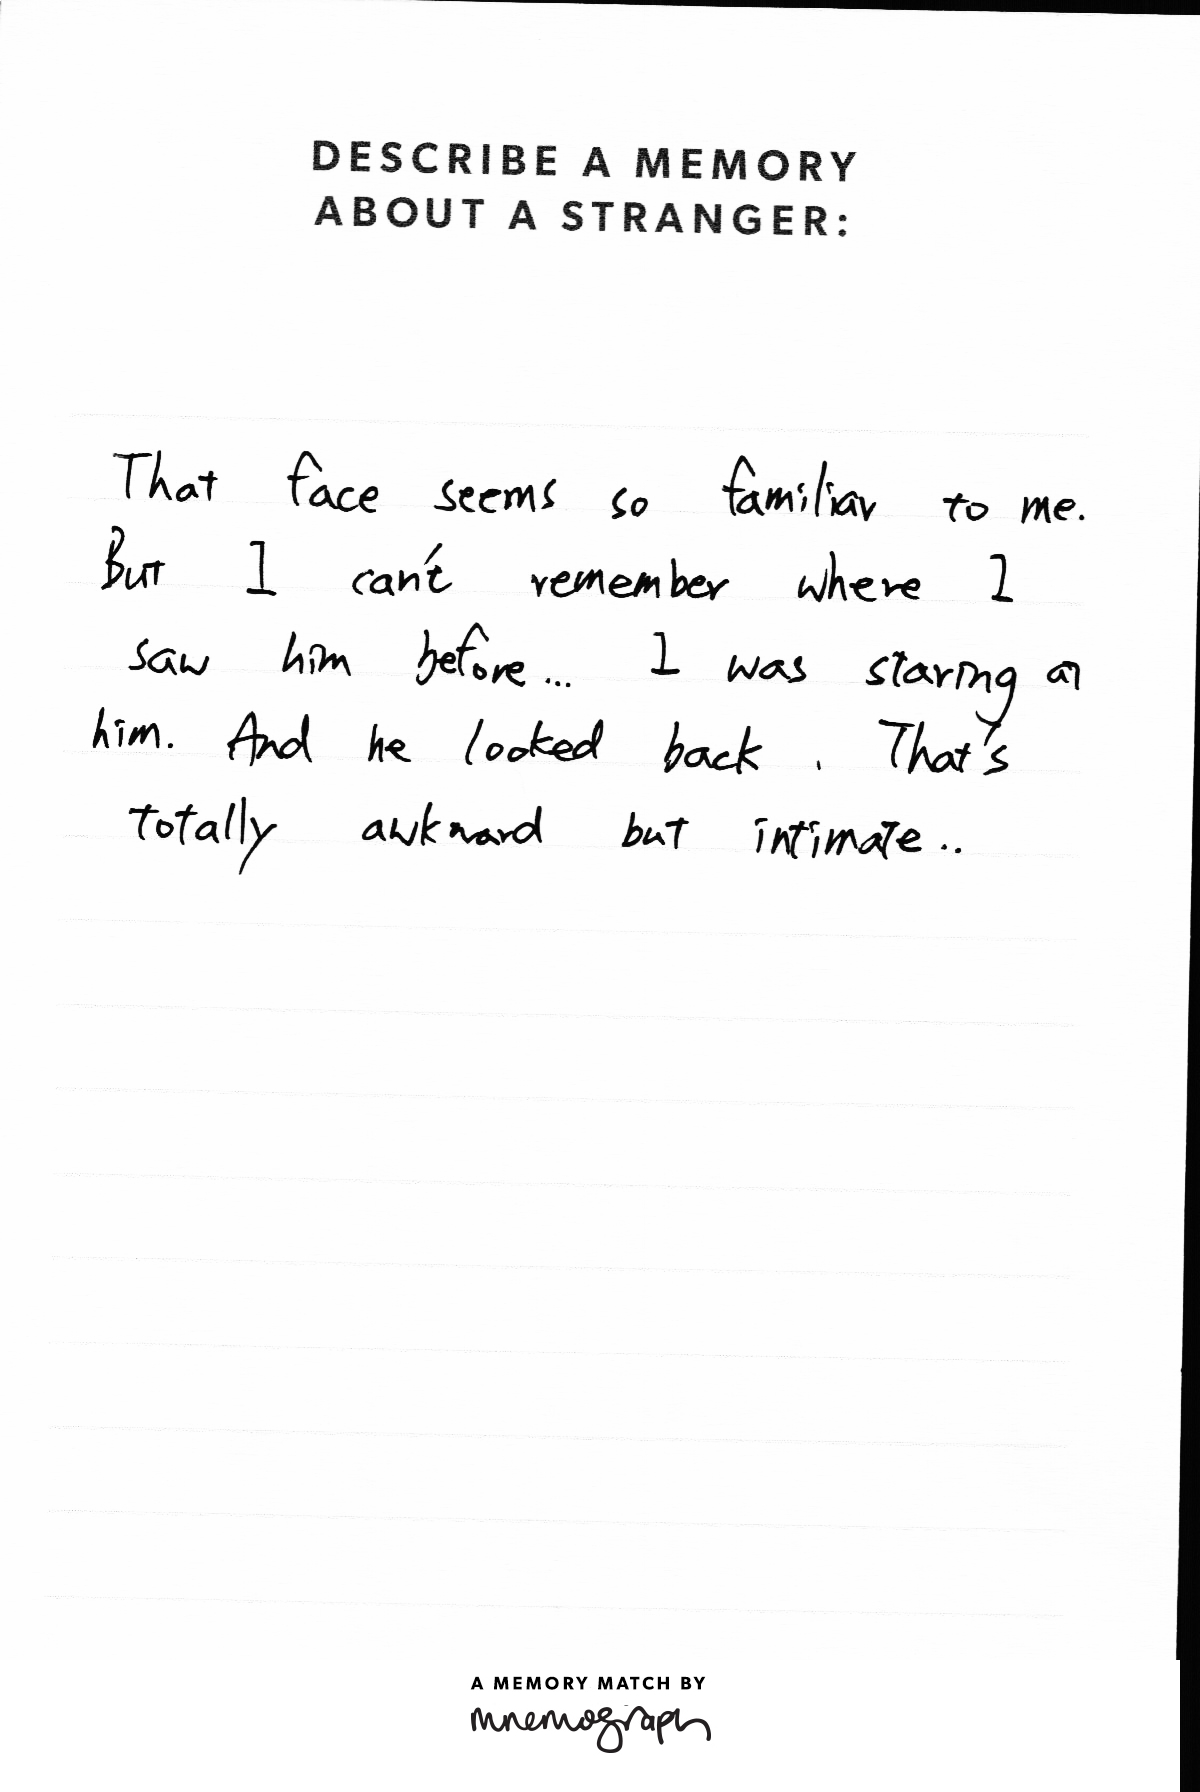 DESCRIBE A MEMORY
ABOUT A STRANGER:
That face seems so familiar to me.
But I can't remember where I
saw him before... I was staring at
him. And he looked back. That's
totally awkward but intimate..
A MEMORY MATCH BY
mnemograph